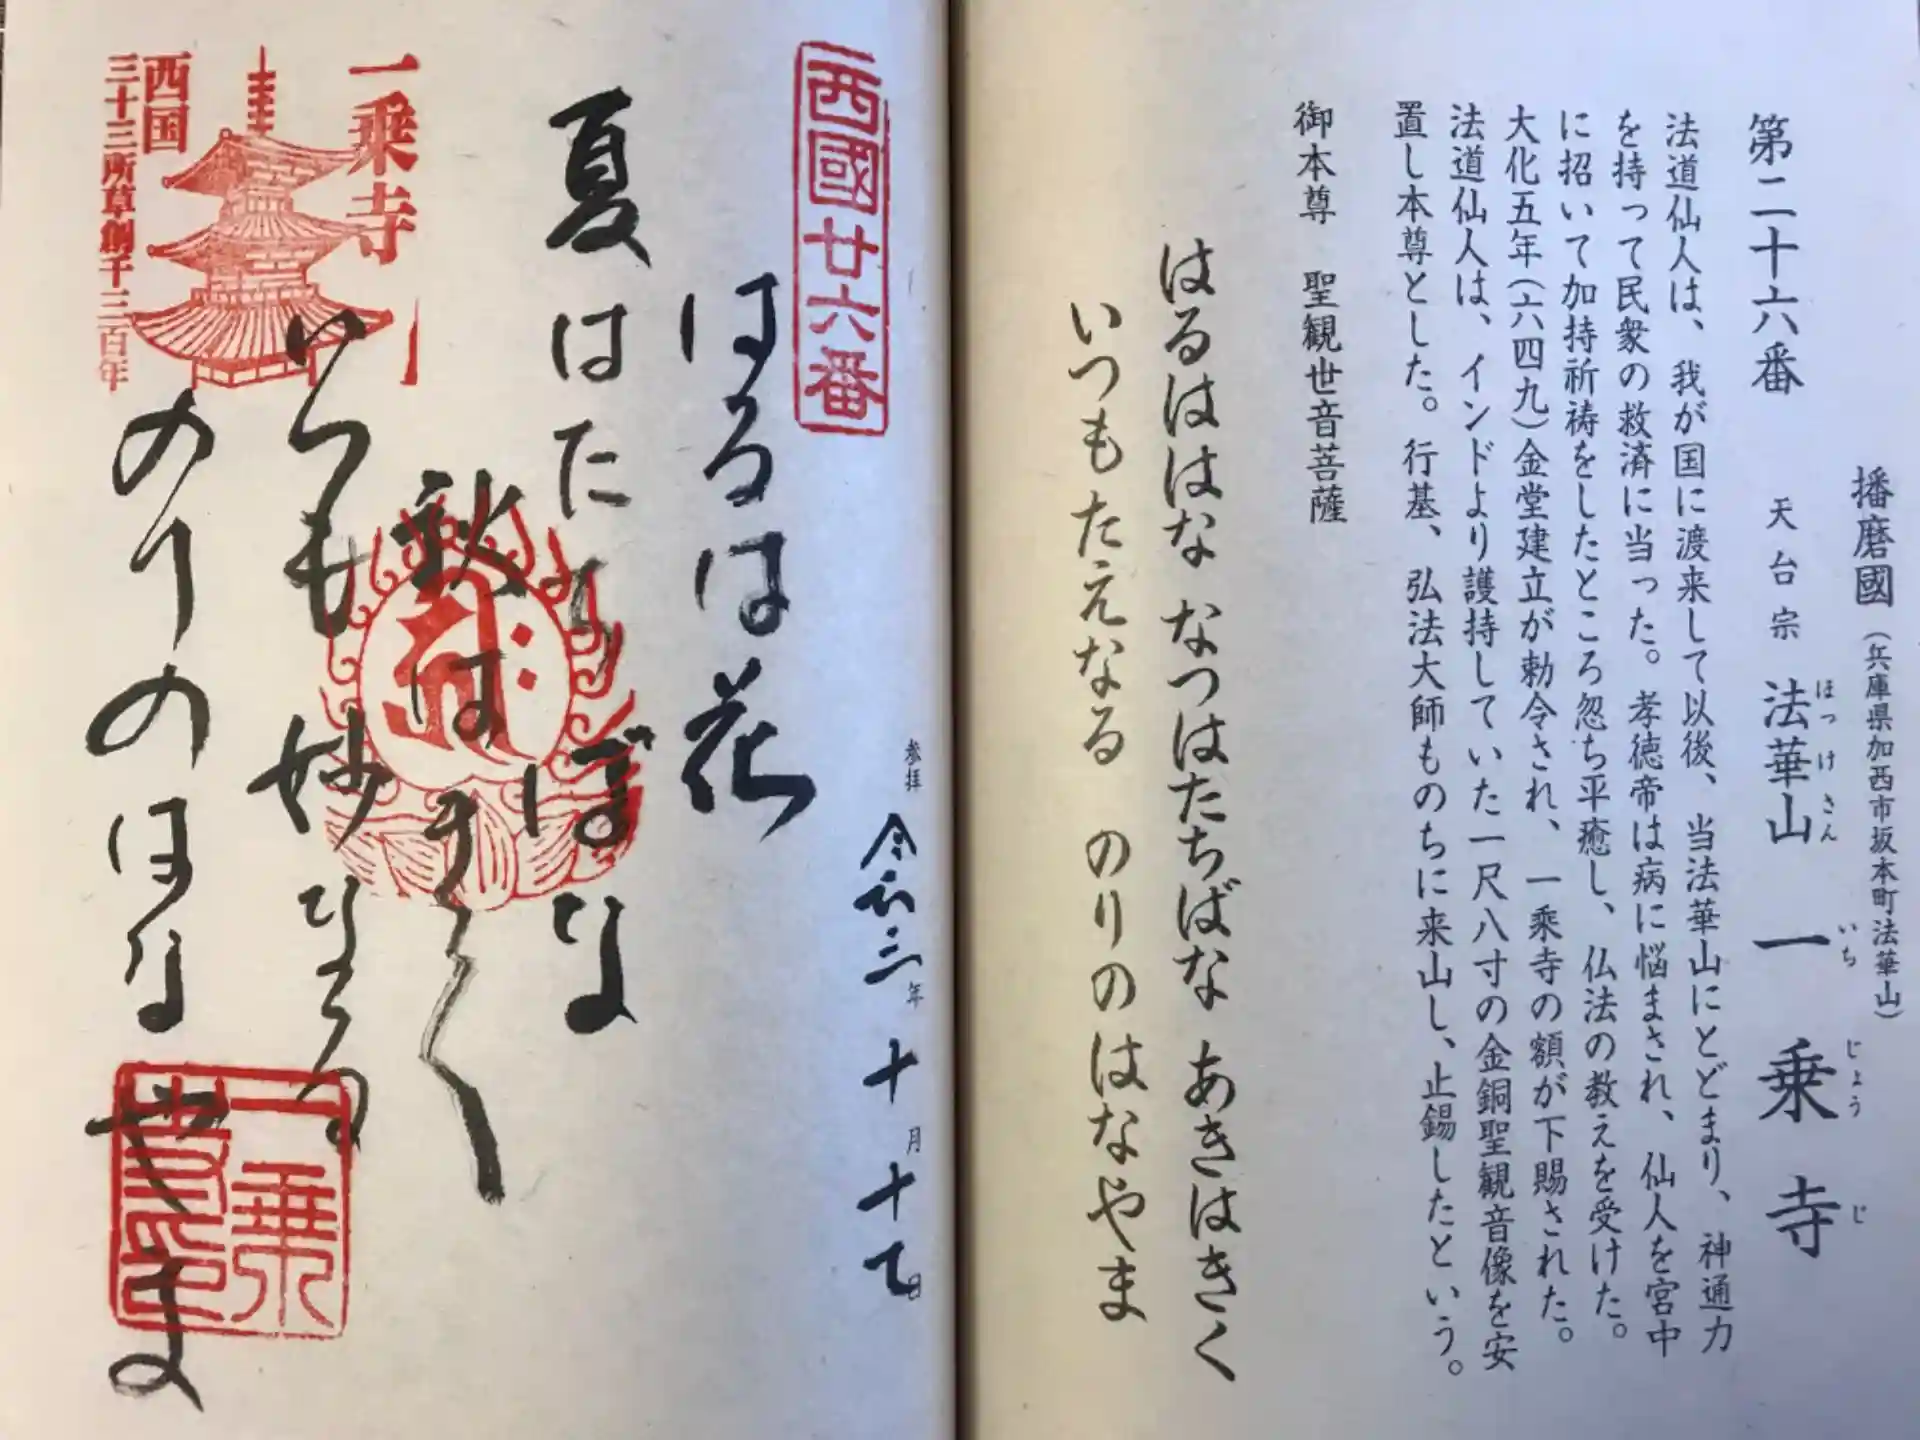 播磨國（兵庫県加西市坂本町法華山）
第二十六番　天台宗　法華山　一乗寺
ほっけさん　いちじょうじ
法道仙人は、我が国に渡来して以後、当法華山にとどまり、神通力
を持って民衆の救済に当った。孝徳帝は病に悩まされ、仙人を宮中
に招いて加持祈祷をしたところ忽ち平癒し、仏法の教えを受けた。
大化五年（六四九）金堂建立が勅令され、一乗寺の額が下賜された。
法道仙人は、インドより護持していた一尺八寸の金銅聖観音像を安
置し本尊とした。行基、弘法大師ものちに来山し、止錫したという。
御本尊　聖観世音菩薩
はるははな　なつはたちばな　あきはきく
いつもたえなる　のりのはなやま
参拝　令和三年十月十七日
西國廿六番
はるは花
夏はたちばな
秋はきく
いつも妙なる
のりのはなやま
一乗寺
西国
三十三所草創千三百年
一乗